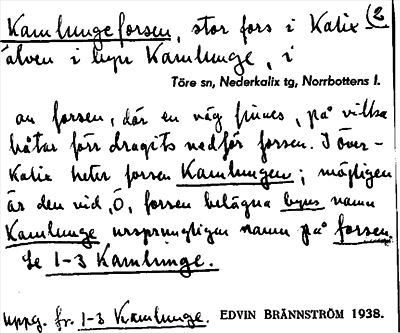 Kamlungeforsen, stor fors i Kalix (2
älven i byn Kamlunge, i
Töre sn, Nederkalix tg, Norrbottens l.
av forsen, där en väg finnes, på vilka
båtar förr dragits nedför forsen. I Över-
Kalix heter forsen Kamlungen; möjligen
är den vid, Ö, forsen belägna byns namn
Kamlunge ursprungligen namn på forsen.
Se 1-3 Kamlunge.
uppg. fr. 1-3 Kamlunge. EDVIN BRÄNNSTRÖM 1938.